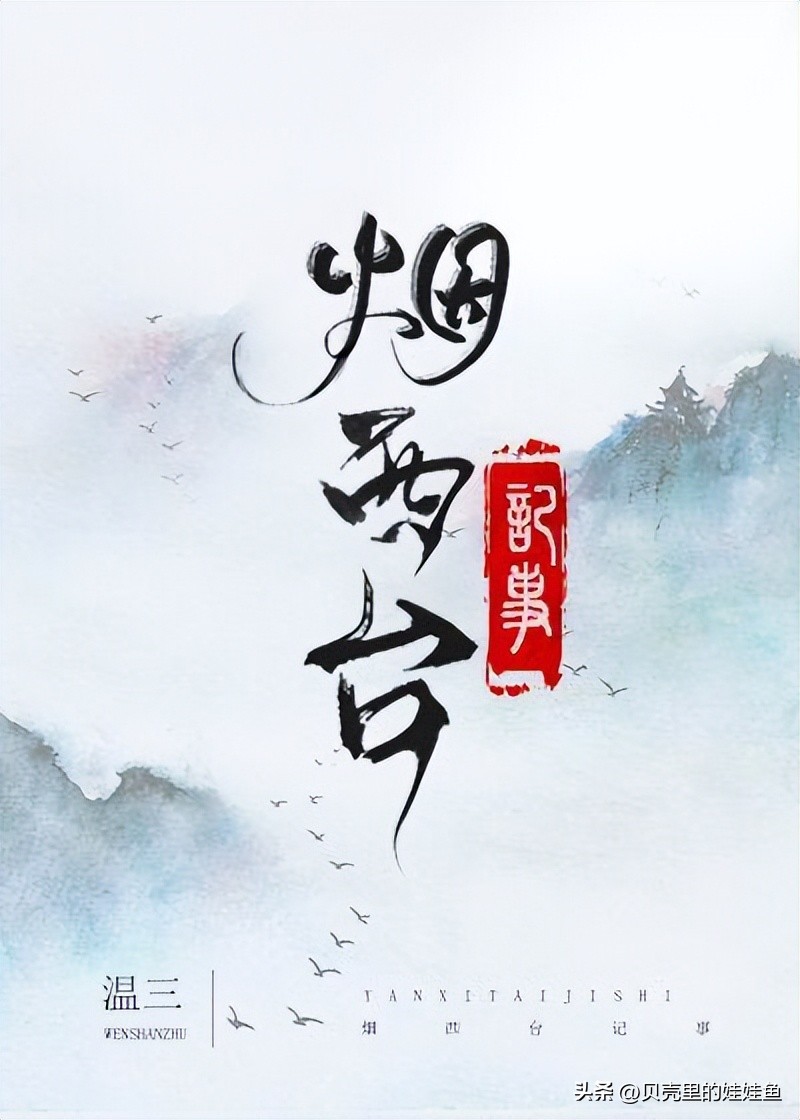 烟西台
記事
温三
WENSHANZHU
YANXITAIJISHI
烟西台记事
头条 @贝壳里的娃娃鱼